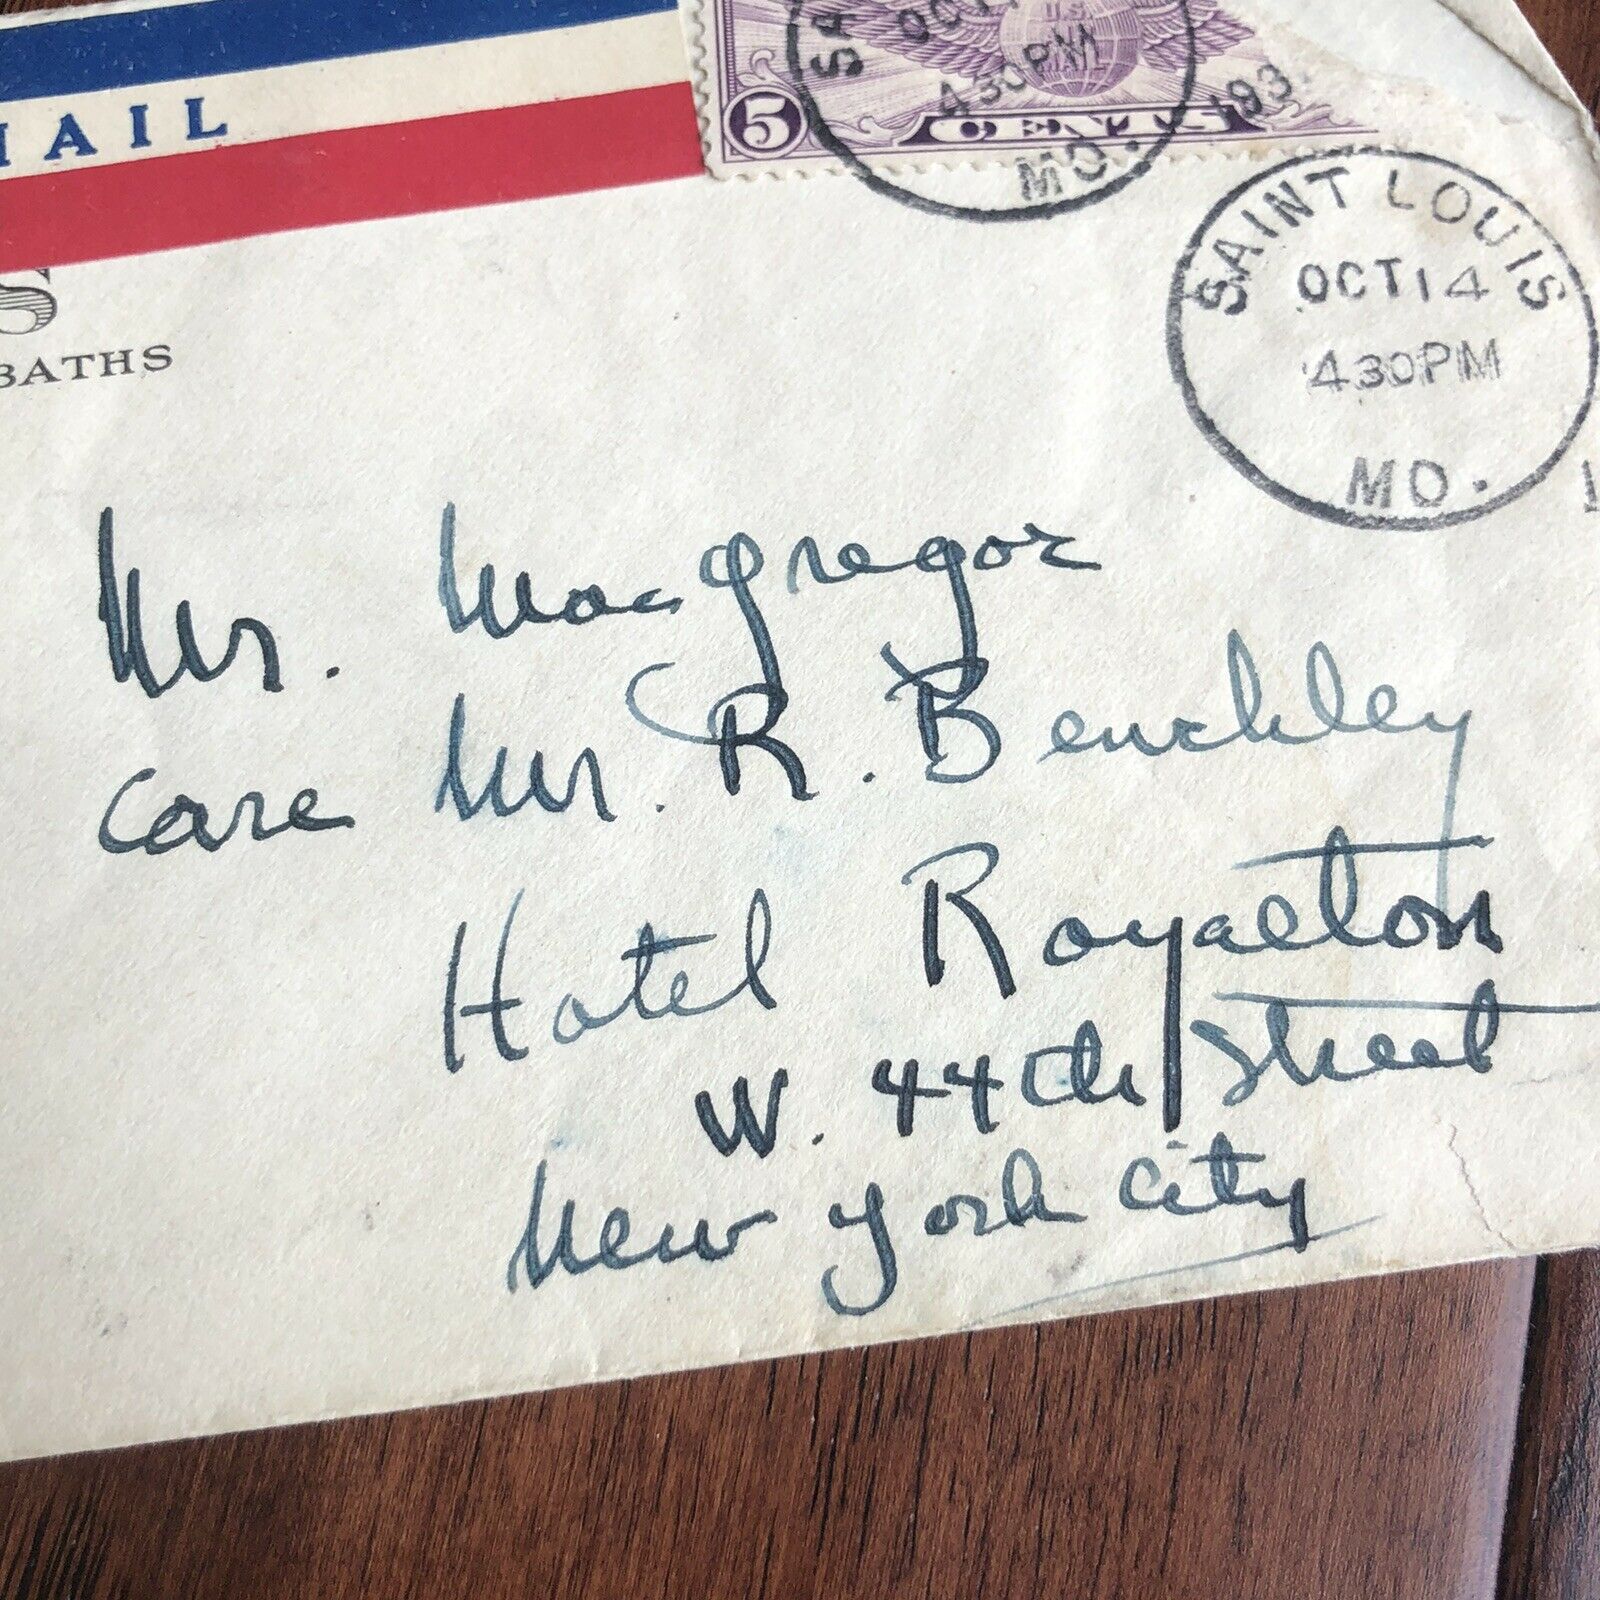 MAIL
5 CENTS
U.S.
OCT
430PM
MO.
193
SAINT LOUIS
OCT 14
430PM
MO.
S
BATHS
Mr. MacGregor
Care Mr. R. Benchley
Hotel Royalton
W. 44th Street
New York City